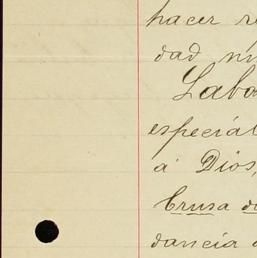 hacer re
dad ni
Labo
especial
á Dios,
Crusa d
dancia a